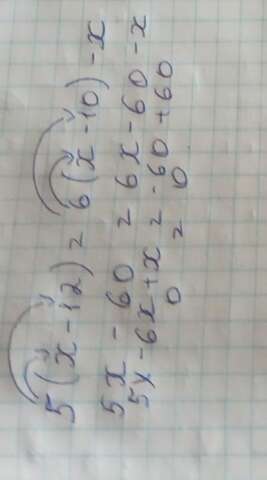 5(x-12) = 6(x-10)-x
5x-60 = 6x-60-x
5x-6x+x = -60+60
0 = 0